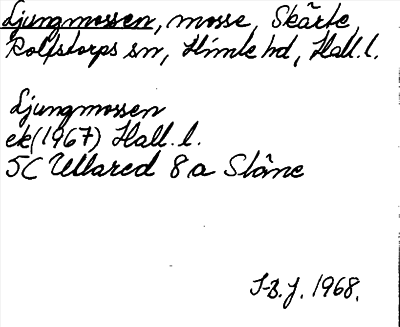 Ljungmossen, mosse, Skärte,
Rolfstorps sn, Himle hd, Hall. l.
Ljungmossen
ek (1967) Hall. l.
5C Ullared 8 a Slöne
I-B.J. 1968.